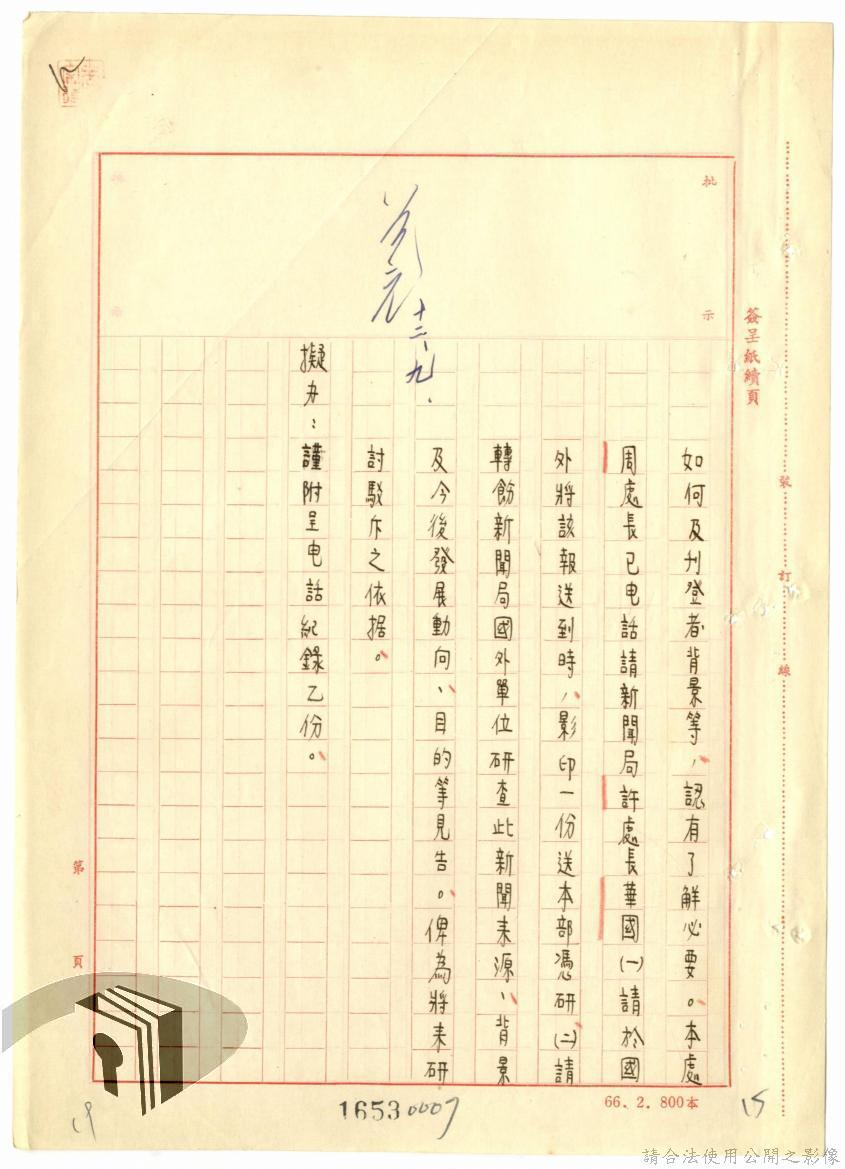 簽呈紙續頁
裝訂線
批示
如何及刊登者背景等，認有了解必要。本處
周處長已电話請新聞局許處長華國㈠請於國
外將該報送到時，影印一份送本部憑研㈡請
轉飭新聞局國外單位研查此新聞来源、背景
及今後發展動向、目的等見告。俾為將来研
討駁斥之依据。
擬办：謹附呈电話紀錄乙份。
十二、九.
第頁
66. 2. 800本
15
16530007
19
請合法使用公開之影像